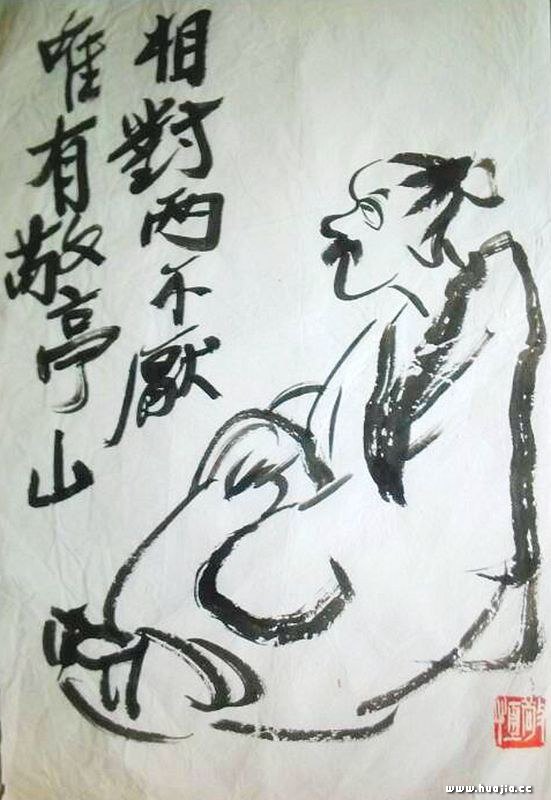 相對两不厭
唯有敬亭山
www.huajia.cc